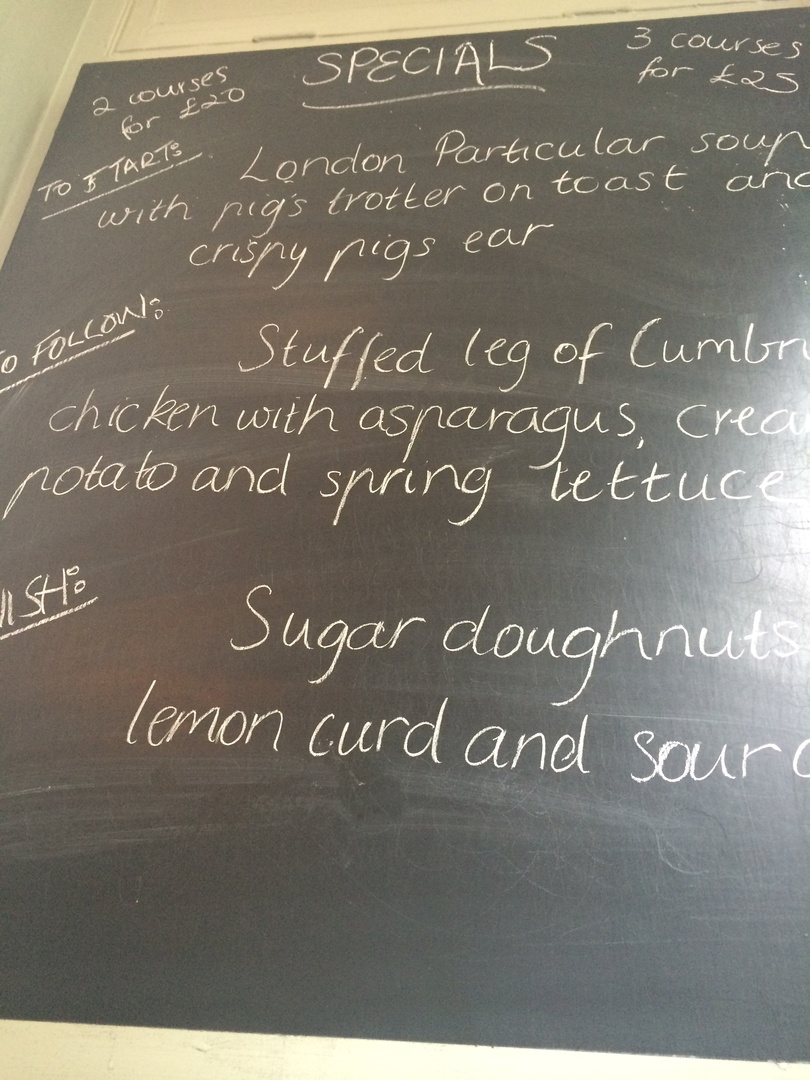 SPECIALS
2 courses
for £20
3 courses
for £25
TO START:
London Particular soup
with pig's trotter on toast and
crispy pigs ear
TO FOLLOW:
Stuffed leg of Cumbri
chicken with asparagus, crea
potato and spring lettuce
ISH:
Sugar doughnuts
lemon curd and sour c